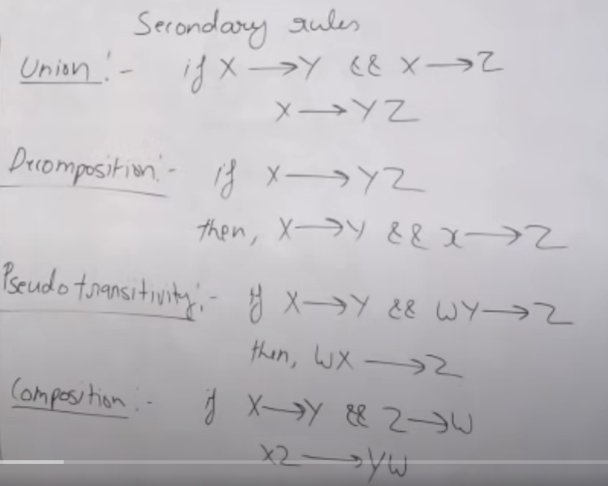 Secondary rules
Union:- if X → Y && X → Z
X → YZ
Decomposition:- if X → YZ
then, X → Y && X → Z
Pseudo transitivity:- if X → Y && WY → Z
then, WX → Z
Composition:- if X → Y && Z → W
XZ → YW